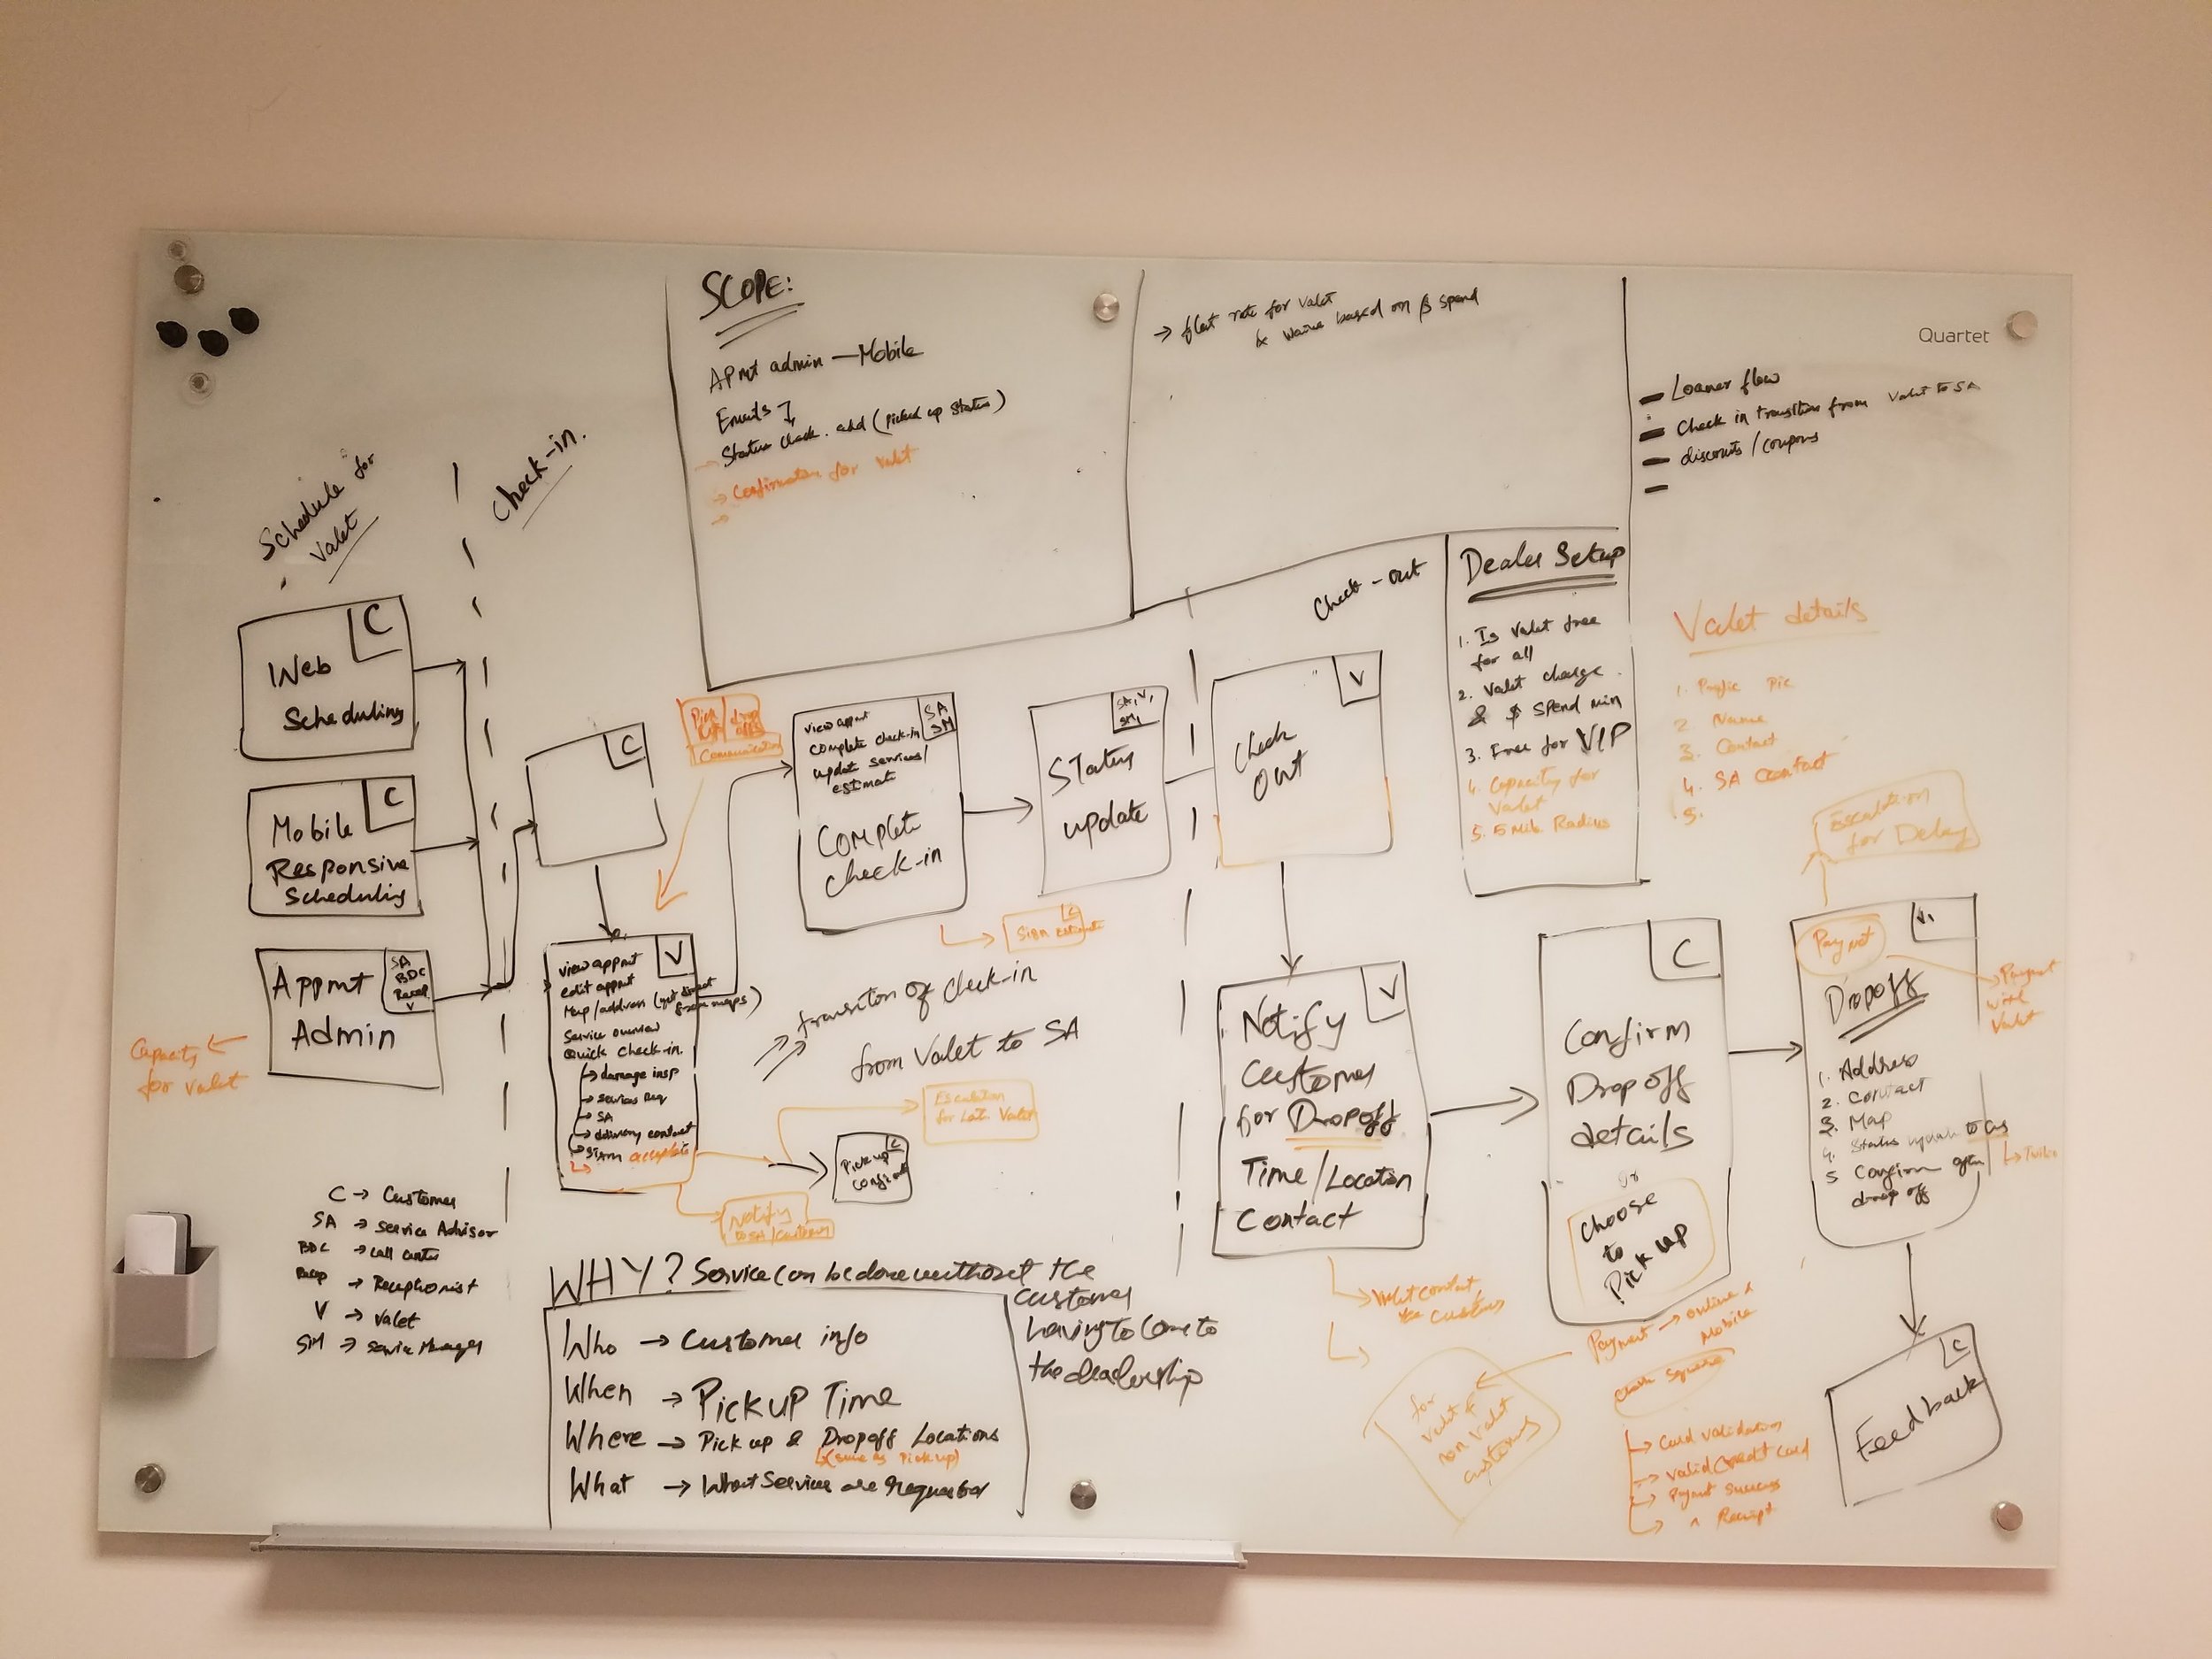 SCOPE:
Apmt admin — Mobile
Emails
Status check. add (picked up status)
→ Confirmation for valet
→
→ flat rate for valet
& waive based on $ spend
Quartet
— Loaner flow
— Check in transition from Valet to SA
— discounts / coupons
—
Schedule for
Valet
Check-in.
Check-out
Web
Scheduling
C
Mobile
Responsive
Scheduling
C
Appmt
Admin
SA
BDC
Recep
V
Capacity
for valet
C
Pick
up/
drop
offs
Communication
view appmt
edit appmt
Map/address (get direct
from maps)
Service overview
Quick check-in.
→ damage insp
→ services req
→ SA
→ delivery contact
→ sign accepte
V
transition of check-in
from Valet to SA
Escalation
for Late Valet
Pick up
C
Notify
to SA/Customer
view appmt
complete check-in
update services/
estimate
SA
SM
Complete
check-in
Sign estimate
C
Status
update
SA, V,
SM,
Check
out
V
Dealer Setup
1. Is Valet free
for all
2. Valet charge
& $ Spend min
3. Free for VIP
4. Capacity for
Valet
5. 5 Mile Radius
Valet details
1. Profile Pic
2 Name
3. Contact
4. SA Contact
5.
Escalation
for Delay
Notify
Customer
for Dropoff
Time/Location
Contact
V
Valet contact
Customers
Confirm
Drop off
details
or
choose
to
Pick up
C
Dropoff
V,
1. Address
2. Contact
3. Map
4. Status update to Cus
5 Confirm after
drop off
→ Twilio
Payment
with
Valet
Payment → online &
Mobile
Square
→ Card validation
→ valid credit card
→ Paymt success
→ Receipt
for
Valet &
non Valet
customers
Feedback
C
C → Customer
SA → Service Advisor
BDC → call center
Recep → Receptionist
V → Valet
SM → Service Manager
WHY? Service can be done without the
customer
having to come to
the dealership
Who → Customer info
When → Pick up Time
Where → Pick up & Dropoff Locations
(same as Pick up)
What → What Services are requested